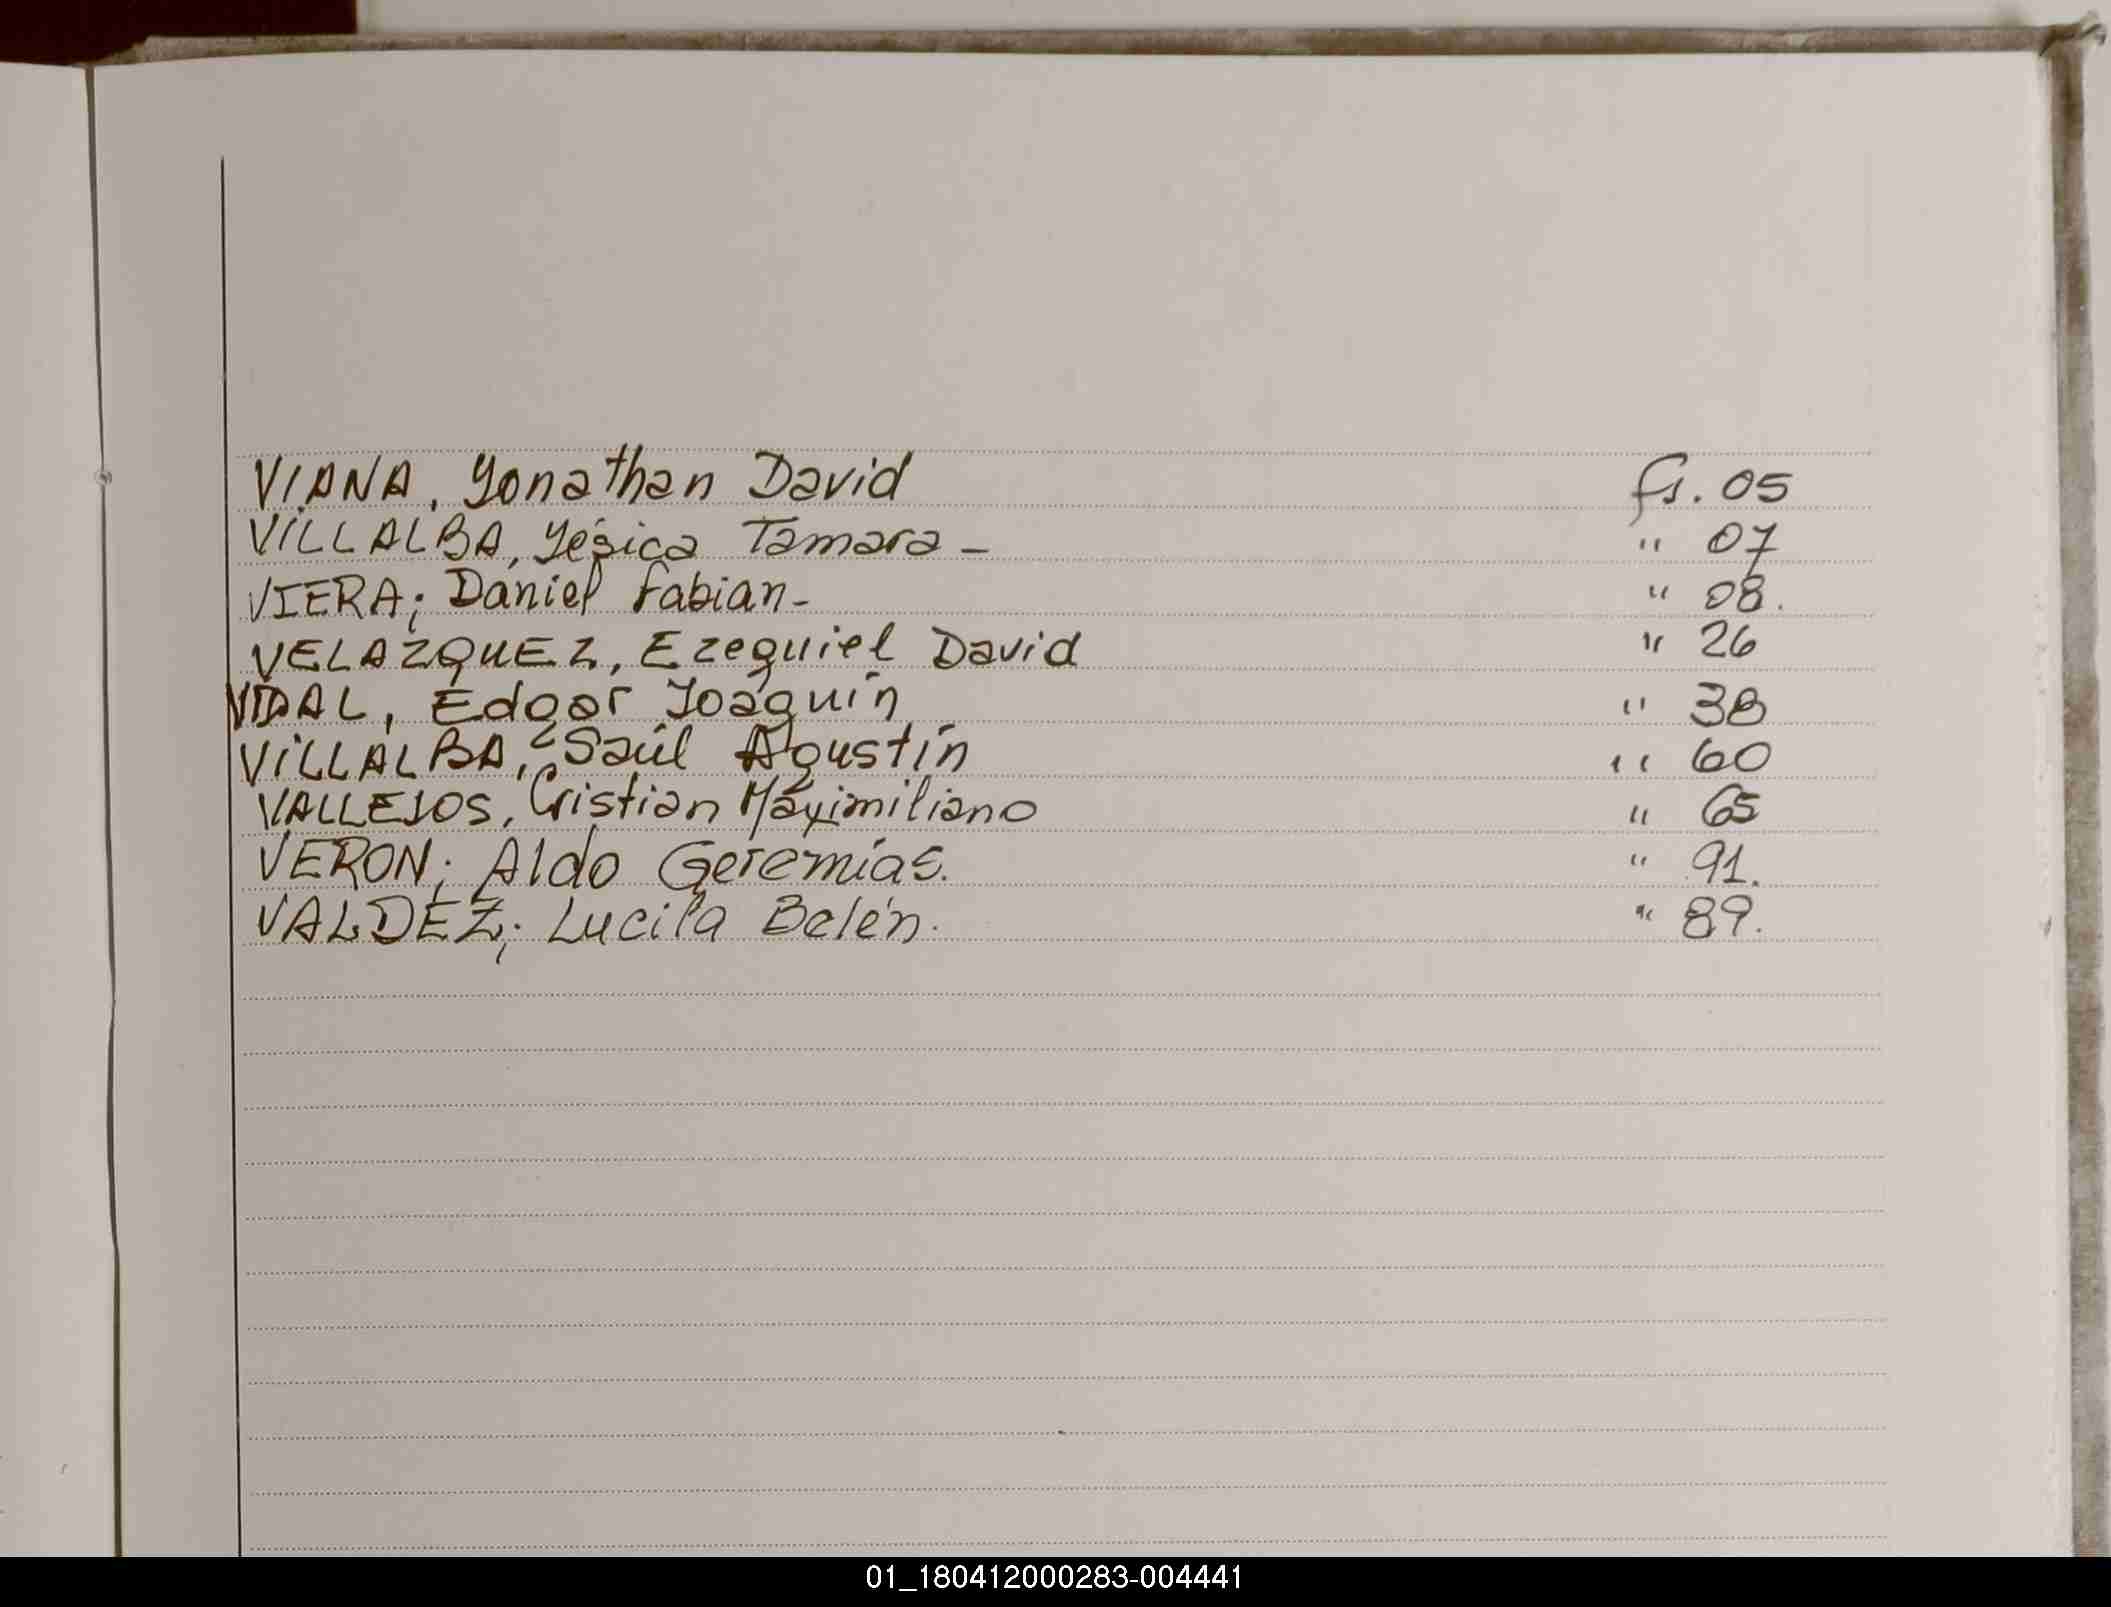 VIANA, Yonathan David fs. 05
VILLALBA, Yésica Tamara - " 07
VIERA; Daniel Fabian- " 08.
VELAZQUEZ, Ezequiel David " 26
VIDAL, Edgar Joaquín " 38
VILLALBA, Saúl Agustín " 60
VALLEJOS, Cristian Maximiliano " 65
VERON; Aldo Geremías. " 91.
VALDEZ; Lucila Belén. " 89.
01_180412000283-004441